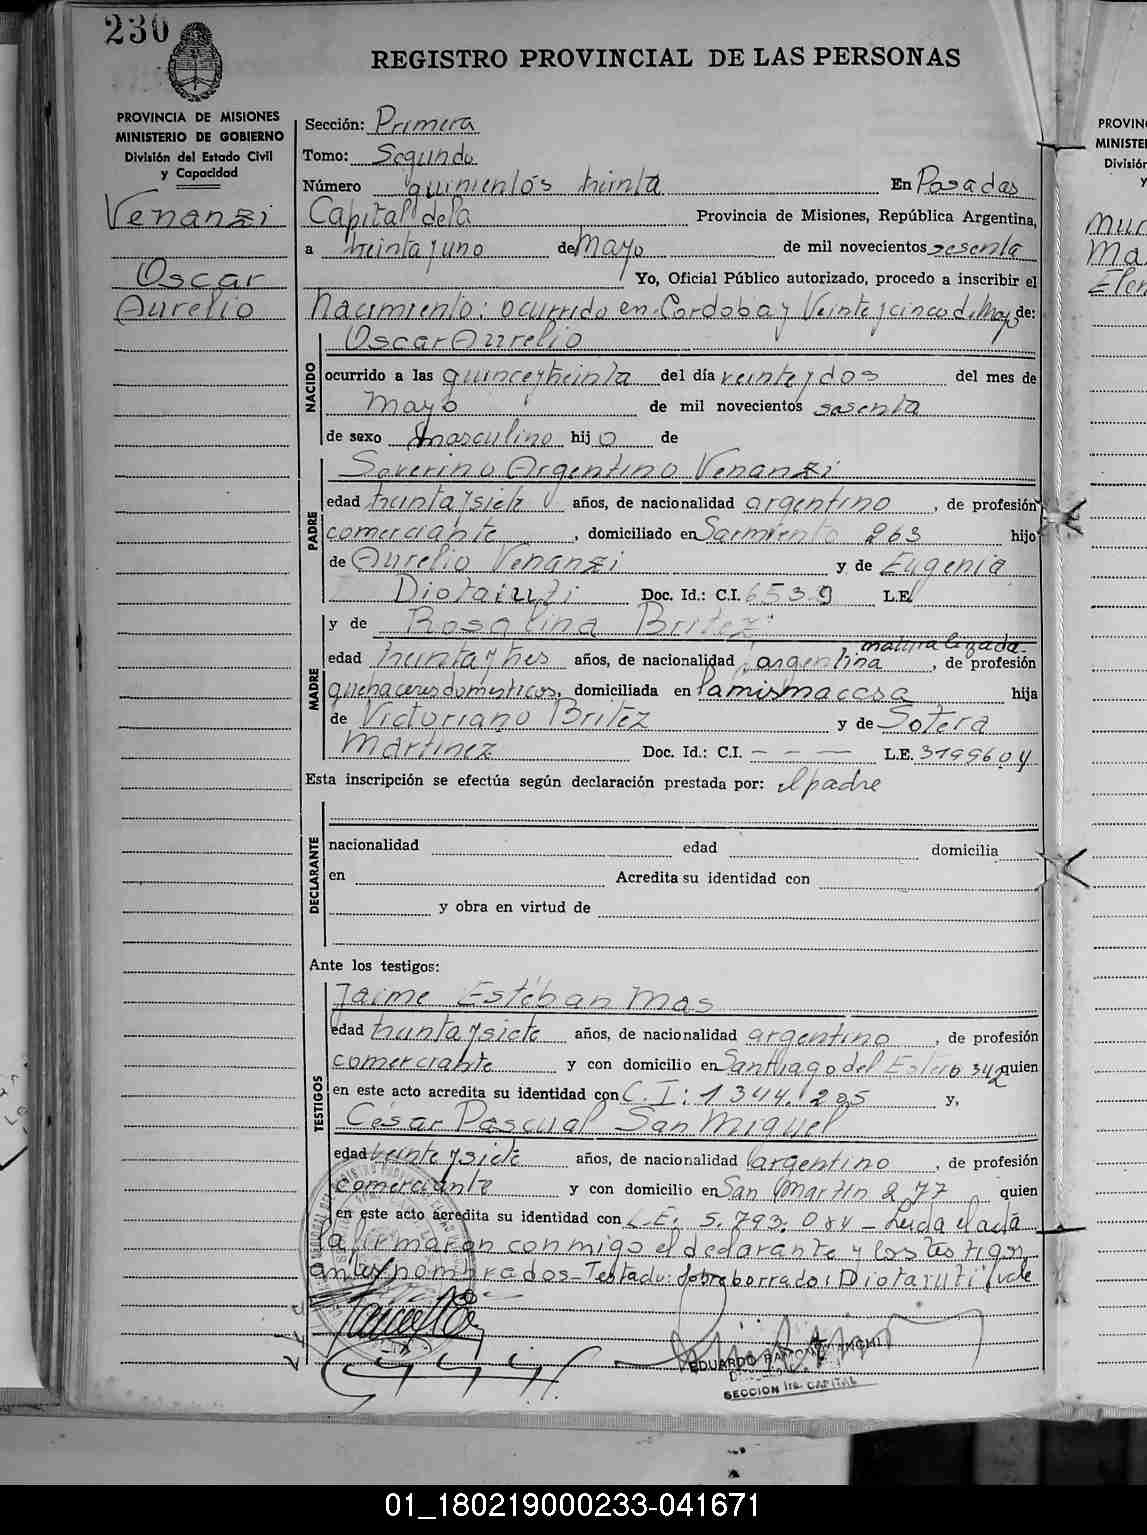 230
REGISTRO PROVINCIAL DE LAS PERSONAS
PROVINCIA DE MISIONES
MINISTERIO DE GOBIERNO
División del Estado Civil
y Capacidad
Venanzi
Oscar
Aurelio
Sección: Primera
Tomo: Segundo
Número quinientos treinta En Posadas
Capital de la Provincia de Misiones, República Argentina,
a treinta y uno de Mayo de mil novecientos sesenta
Yo, Oficial Público autorizado, procedo a inscribir el
Nacimiento: ocurrido en Cordoba y Veinte y cinco de Mayo de:
NACIDO
Oscar Aurelio
ocurrido a las quince y treinta del día veinte y dos del mes de
Mayo de mil novecientos sesenta
de sexo masculino hijo de
PADRE
Severino Argentino Venanzi
edad treinta y siete años, de nacionalidad argentino, de profesión
comerciante, domiciliado en Sarmiento 263 hijo
de Aurelio Venanzi y de Eugenia
Diotaiuti Doc. Id.: C.I. 6539 L.E.
MADRE
y de Rosalina Britez
naturalizada
edad treinta y tres años, de nacionalidad argentina, de profesión
quehaceres domesticos, domiciliada en la misma casa hija
de Victoriano Britez y de Sotera
Martinez Doc. Id.: C.I. — — — L.E. 3199604
Esta inscripción se efectúa según declaración prestada por: el padre
DECLARANTE
nacionalidad edad domicilia
en Acredita su identidad con
y obra en virtud de
Ante los testigos:
TESTIGOS
Jaime Estéban Mas
edad treinta y siete años, de nacionalidad argentino, de profesión
comerciante y con domicilio en Santiago del Estero 342 quien
en este acto acredita su identidad con C.I: 1344.295 y,
Cesar Pascual San Miguel
edad veinte y siete años, de nacionalidad argentino, de profesión
comerciante y con domicilio en San Martin 277 quien
en este acto acredita su identidad con L.E. 5.793.084 - Leida el acta
la firmaron conmigo el declarante y los testigos
antes nombrados - Testado: sobre borrado: Diotaiuti vale
EDUARDO RAMON
SECCION 1ra. CAPITAL
PROVIN
MINISTE
Divisiór
y
Mur
Ma
Elen
01_180219000233-041671